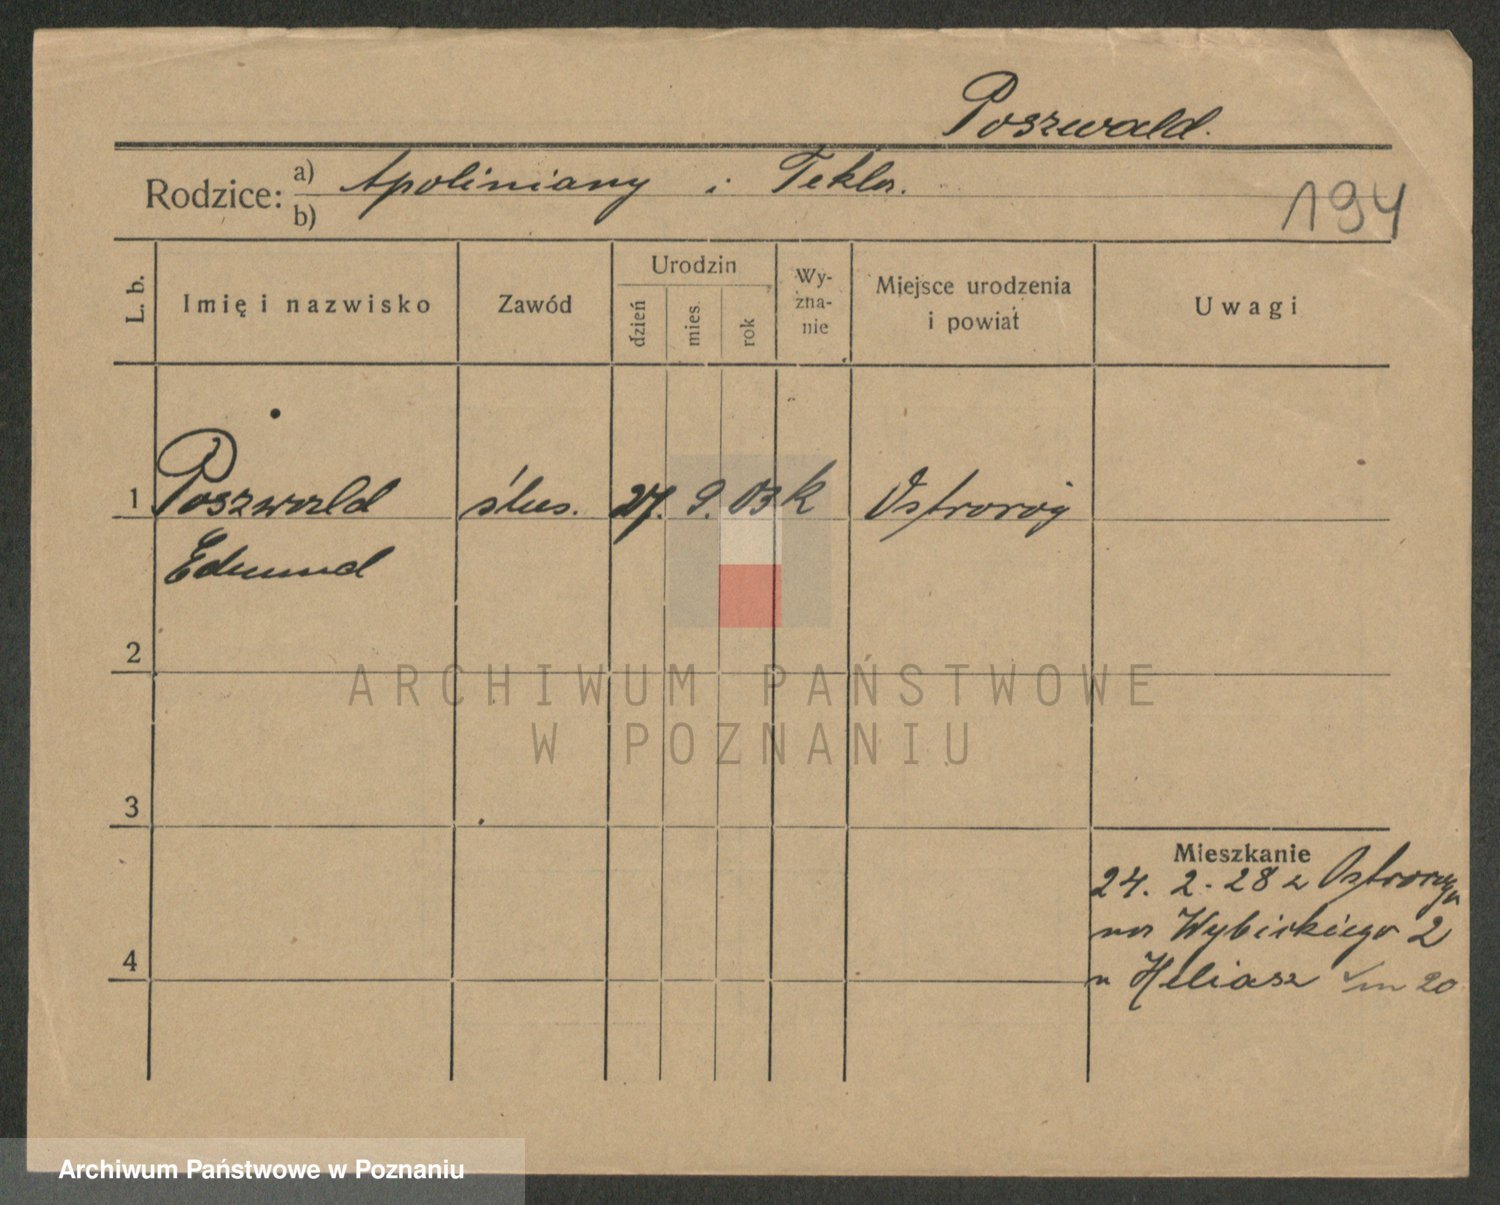 Poszwald.
Rodzice: a) Apoliniary i Tekla.
b)
194
L. b.
Imię i nazwisko
Zawód
Urodzin
dzień
mies.
rok
Wy-
zna-
nie
Miejsce urodzenia
i powiat
Uwagi
1 Poszwald ślus. 27. 9. 03 k Ostroróg
Edmund
2
3
4
Mieszkanie
24. 2. 28 z Ostroroga
na Wybickiego 2
u Heliasz m 20
ARCHIWUM PAŃSTWOWE
W POZNANIU
Archiwum Państwowe w Poznaniu